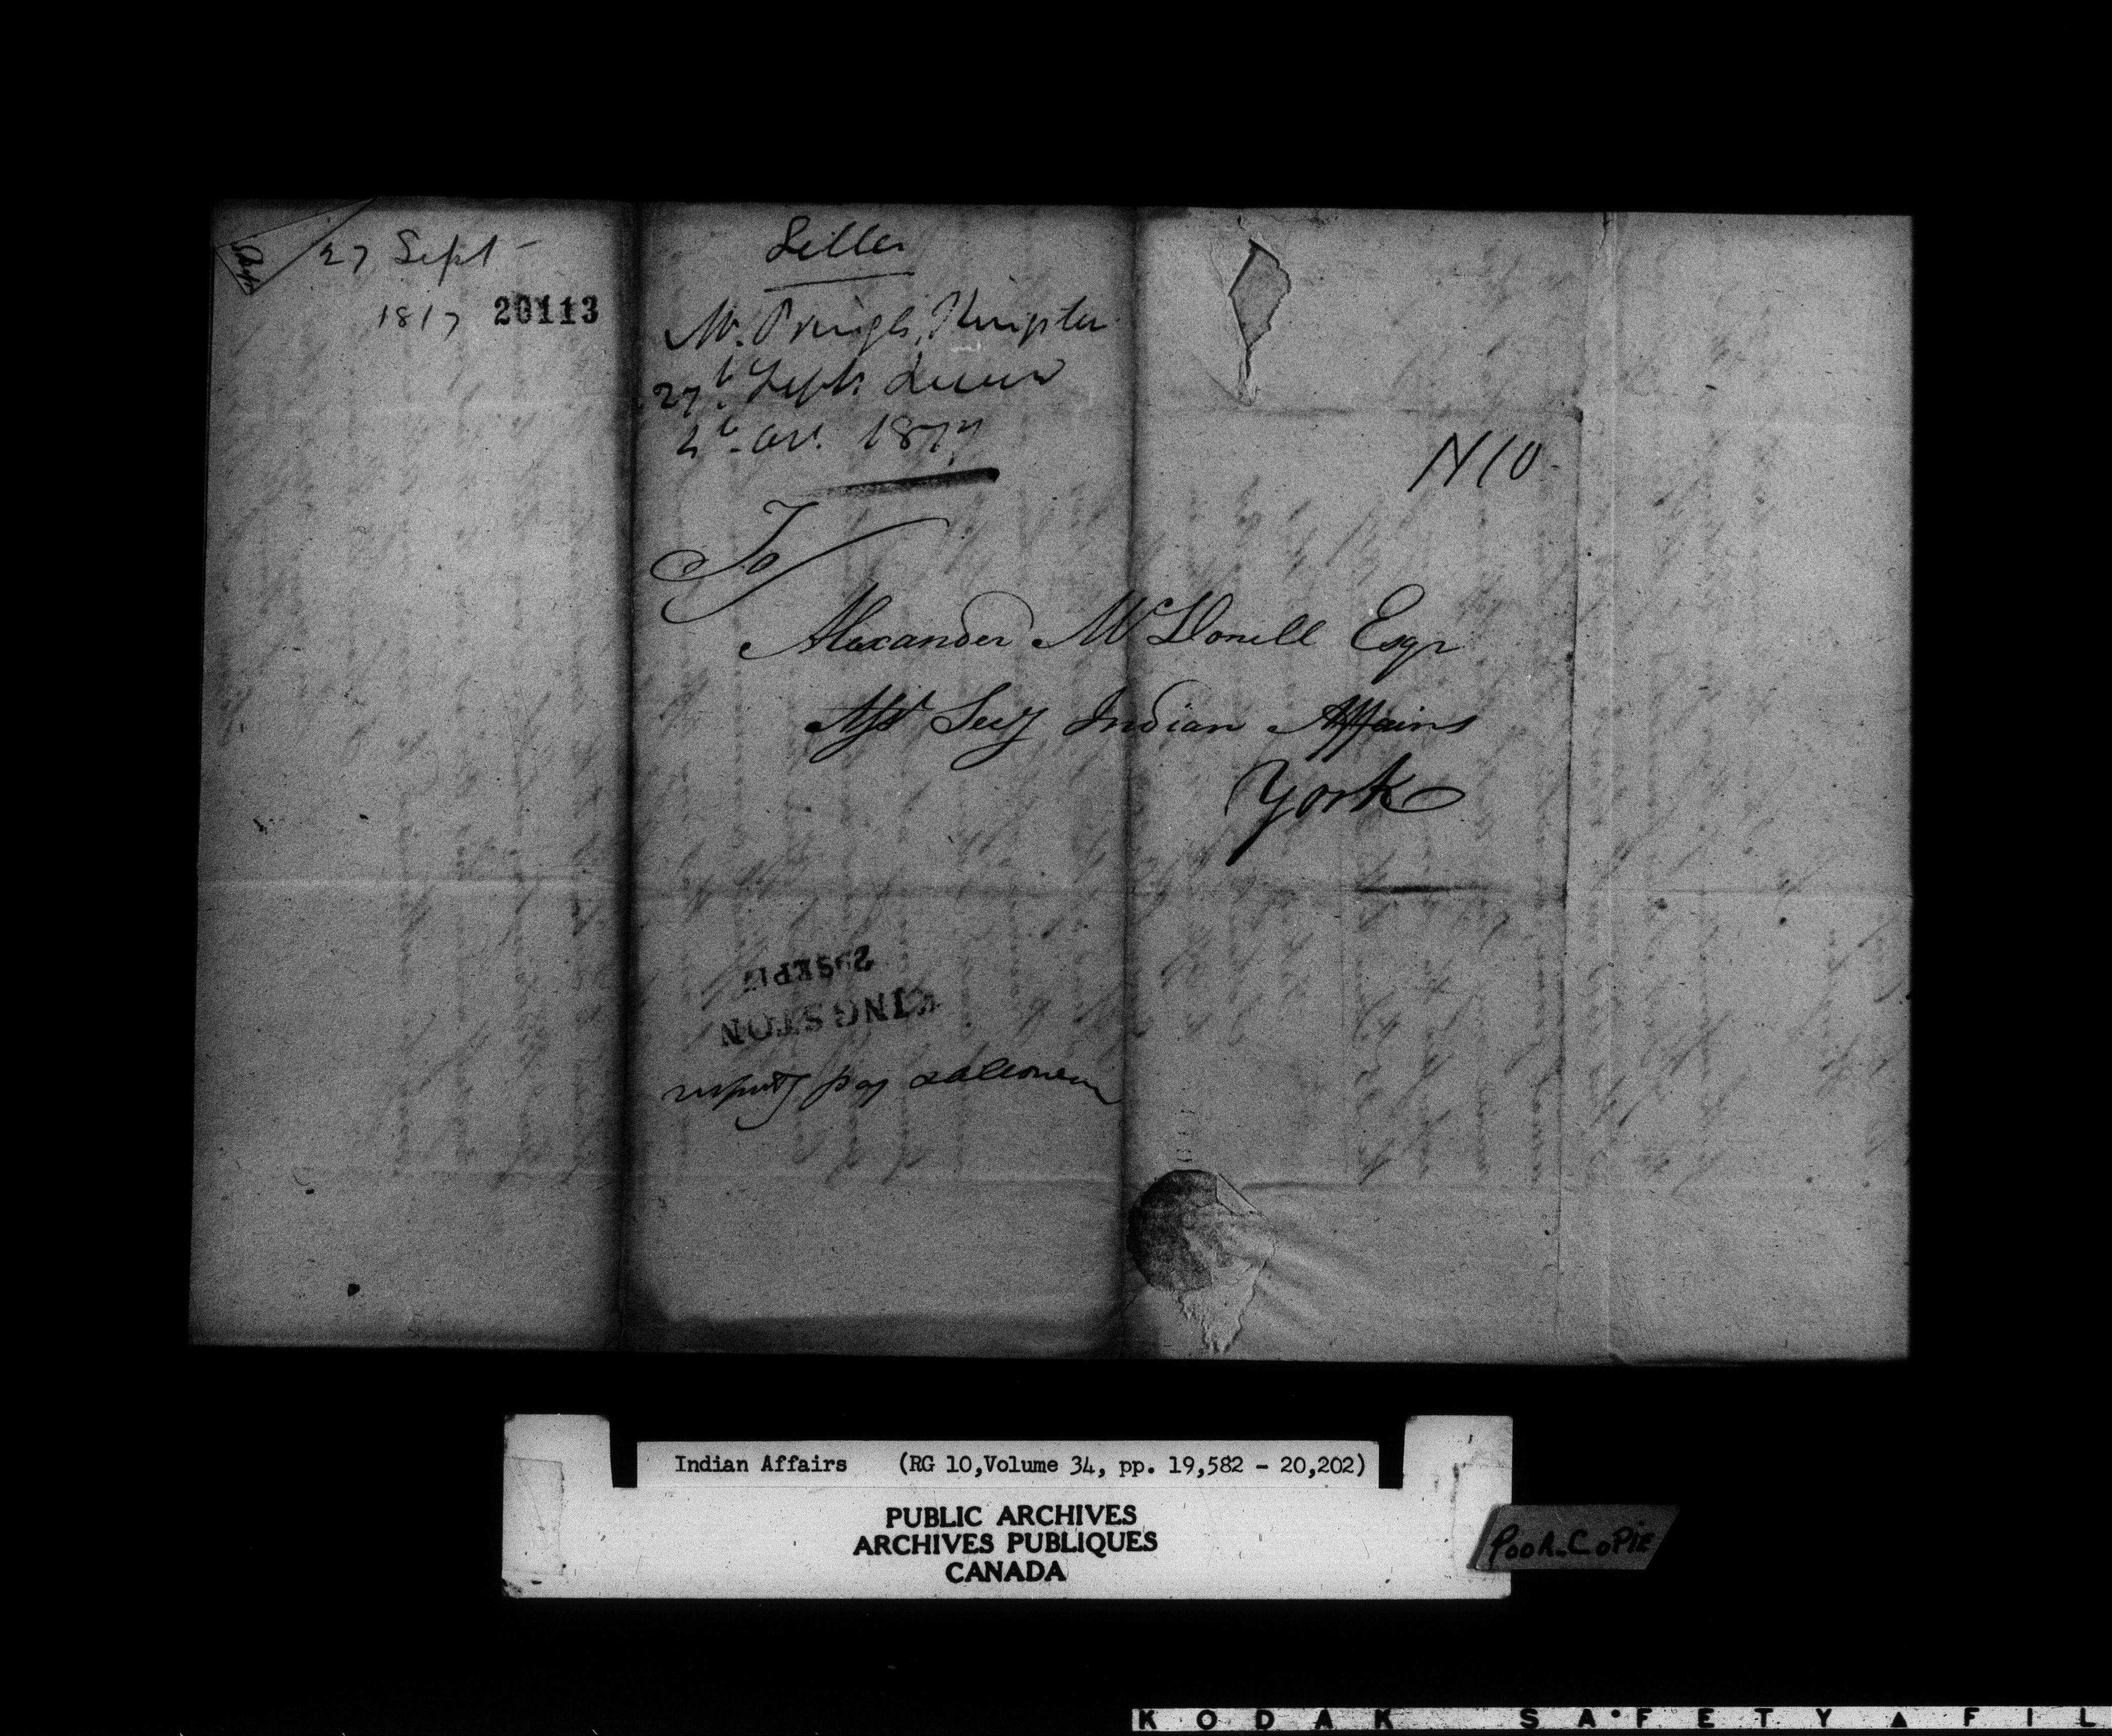 27 Sept
1817 20113
Letter
Mr. Pringle, Kingston
27th Septr.
1817
To
Alexander McDonell Esqr
Asst Secy Indian Affairs
York
N 10
29 SEP 17
KINGSTON
pay
Indian Affairs (RG 10, Volume 34, pp. 19,582 - 20,202)
PUBLIC ARCHIVES
ARCHIVES PUBLIQUES
CANADA
POOR COPIE
KODAK SAFETY ▲ FIL